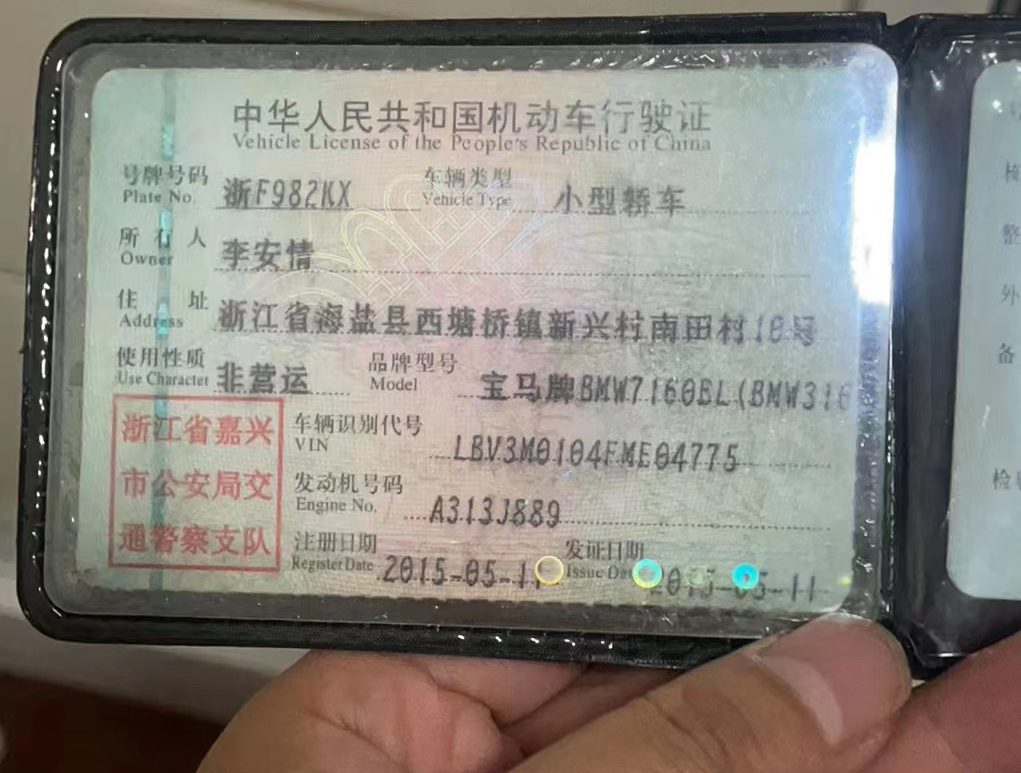 中华人民共和国机动车行驶证
Vehicle License of the People's Republic of China
号牌号码 浙F982KX 车辆类型 小型轿车
Plate No. Vehicle Type
所有人 李安情
Owner
住址 浙江省海盐县西塘桥镇新兴村南田村18号
Address
使用性质 非营运 品牌型号 宝马牌BMW7160BL(BMW316
Use Character Model
浙江省嘉兴
市公安局交
通警察支队
车辆识别代号 LBV3M0104FME04775
VIN
发动机号码 A313J889
Engine No.
注册日期 2015-05-11 发证日期 2015-05-11
Register Date Issue Date
核
整
外
备
检验